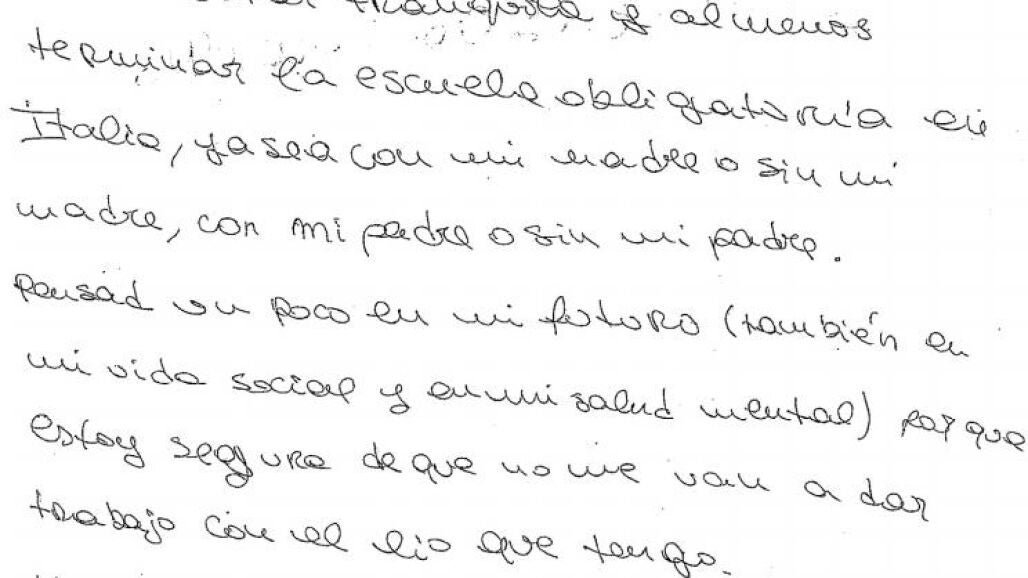 tranquila y al menos
terminar la escuela obligatoria en
Italia, ya sea con mi madre o sin mi
madre, con mi padre o sin mi padre.
Pensad un poco en mi futuro (también en
mi vida social y en mi salud mental) porque
estoy segura de que no me van a dar
trabajo con el lio que tengo.